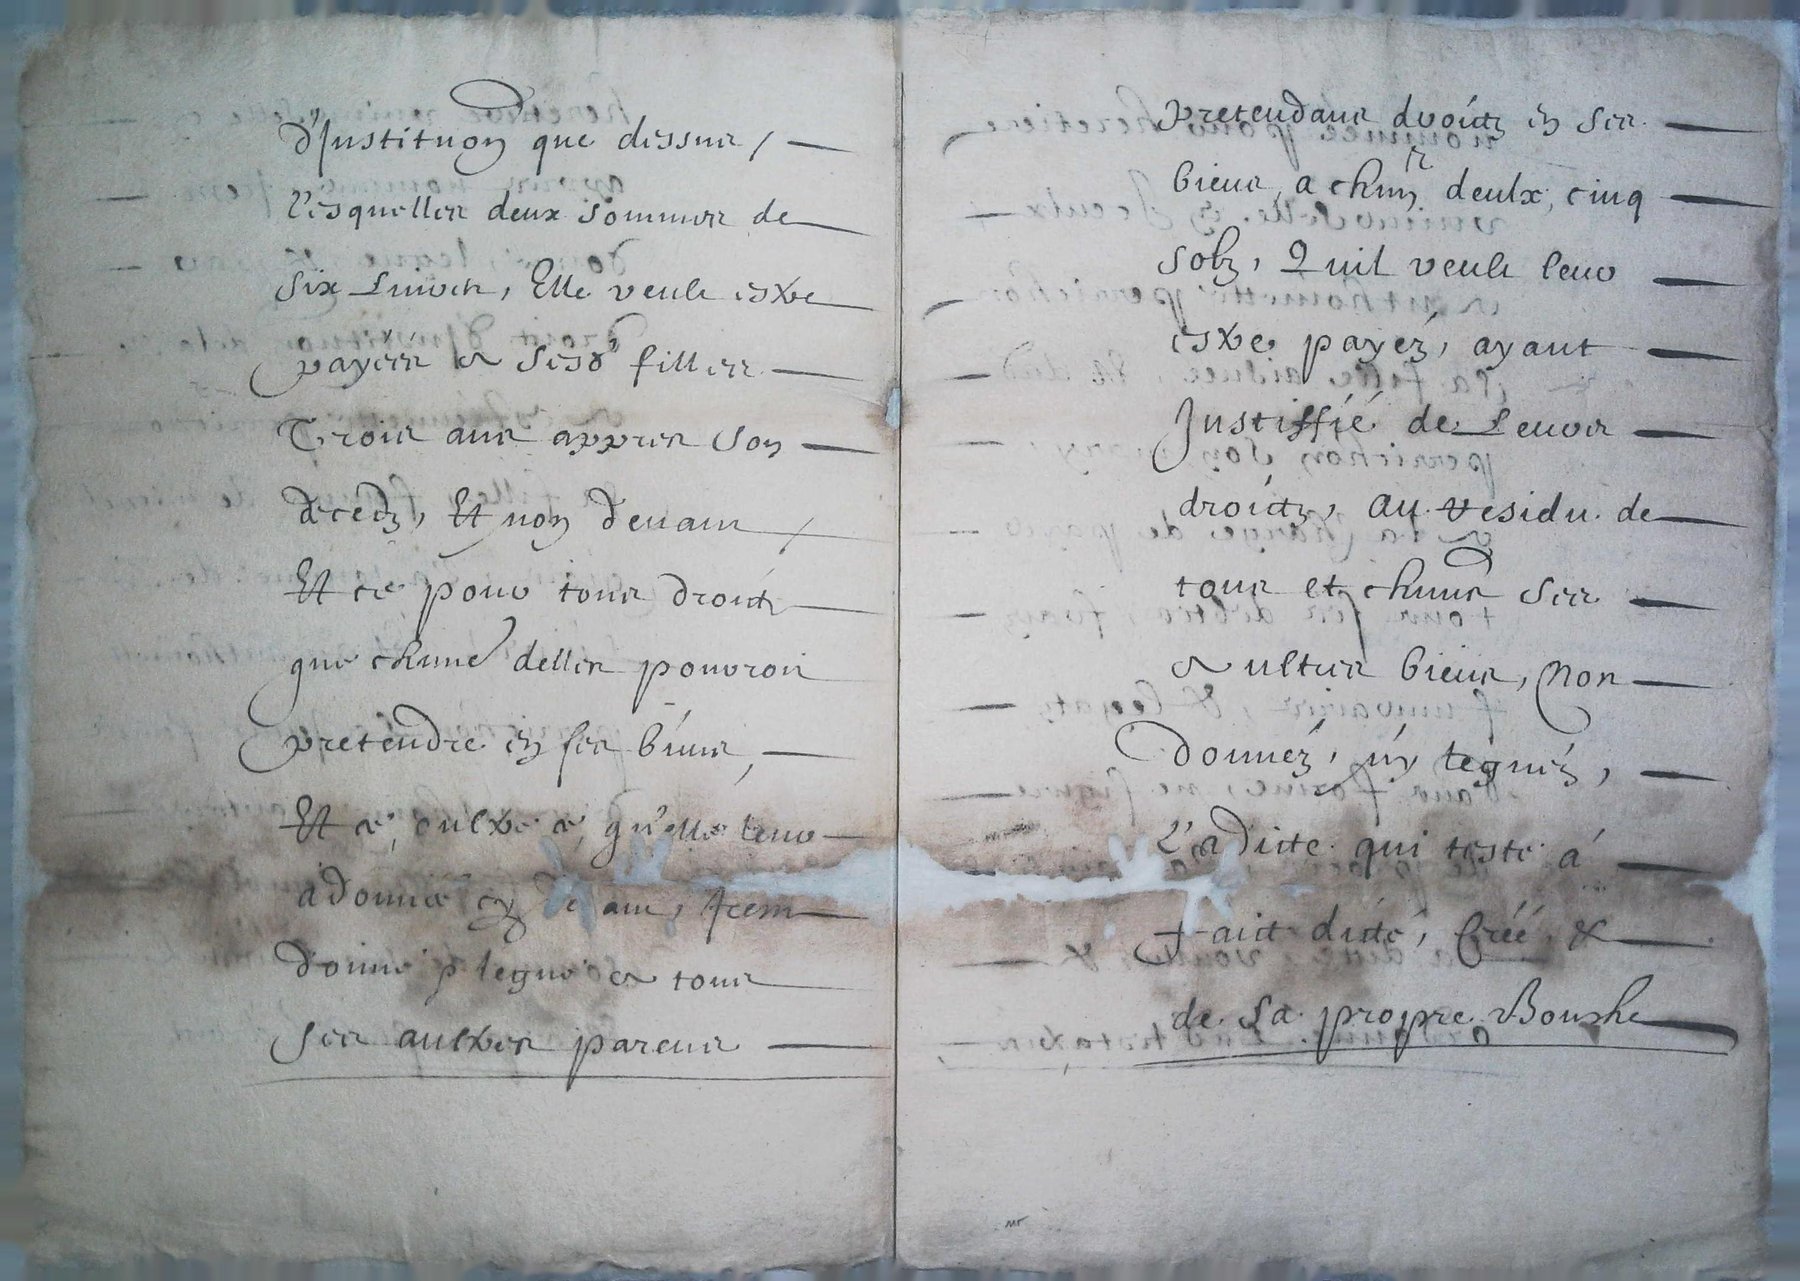 d'Institu͠on que dessus /
lesquelles deux sommes de
six Livres, Elle veult estre
payéés a sesd filles
Trois ans appres son
decedz, Et non devant /
Et ce pour tous droictz
que ch͠une delles pouvroit
pretendre en ses biens,
Et ce, oultre ce, qu'elle leur
a donné cy devant, Item
donne & legue a tous
ses aultres parens
pretendans droictz en ses
biens, a ch͠un deulx, cinq
solz, Quil veult leur
estre payéz, ayant
Justiffié de Leurs
droictz, au residu de
tous et ch͠uns ses
aultres biens, Non
donnéz, ny leguéz,
Ladicte qui teste á
faict dicté, Créé, &
de sa propre Bouche